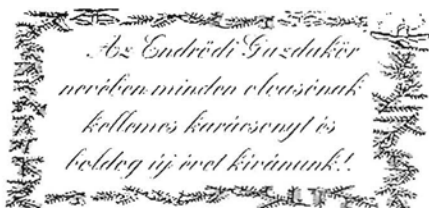 Az Endrődi Gazdakör
nevében minden olvasónak
kellemes karácsonyt és
boldog új évet kívánunk!